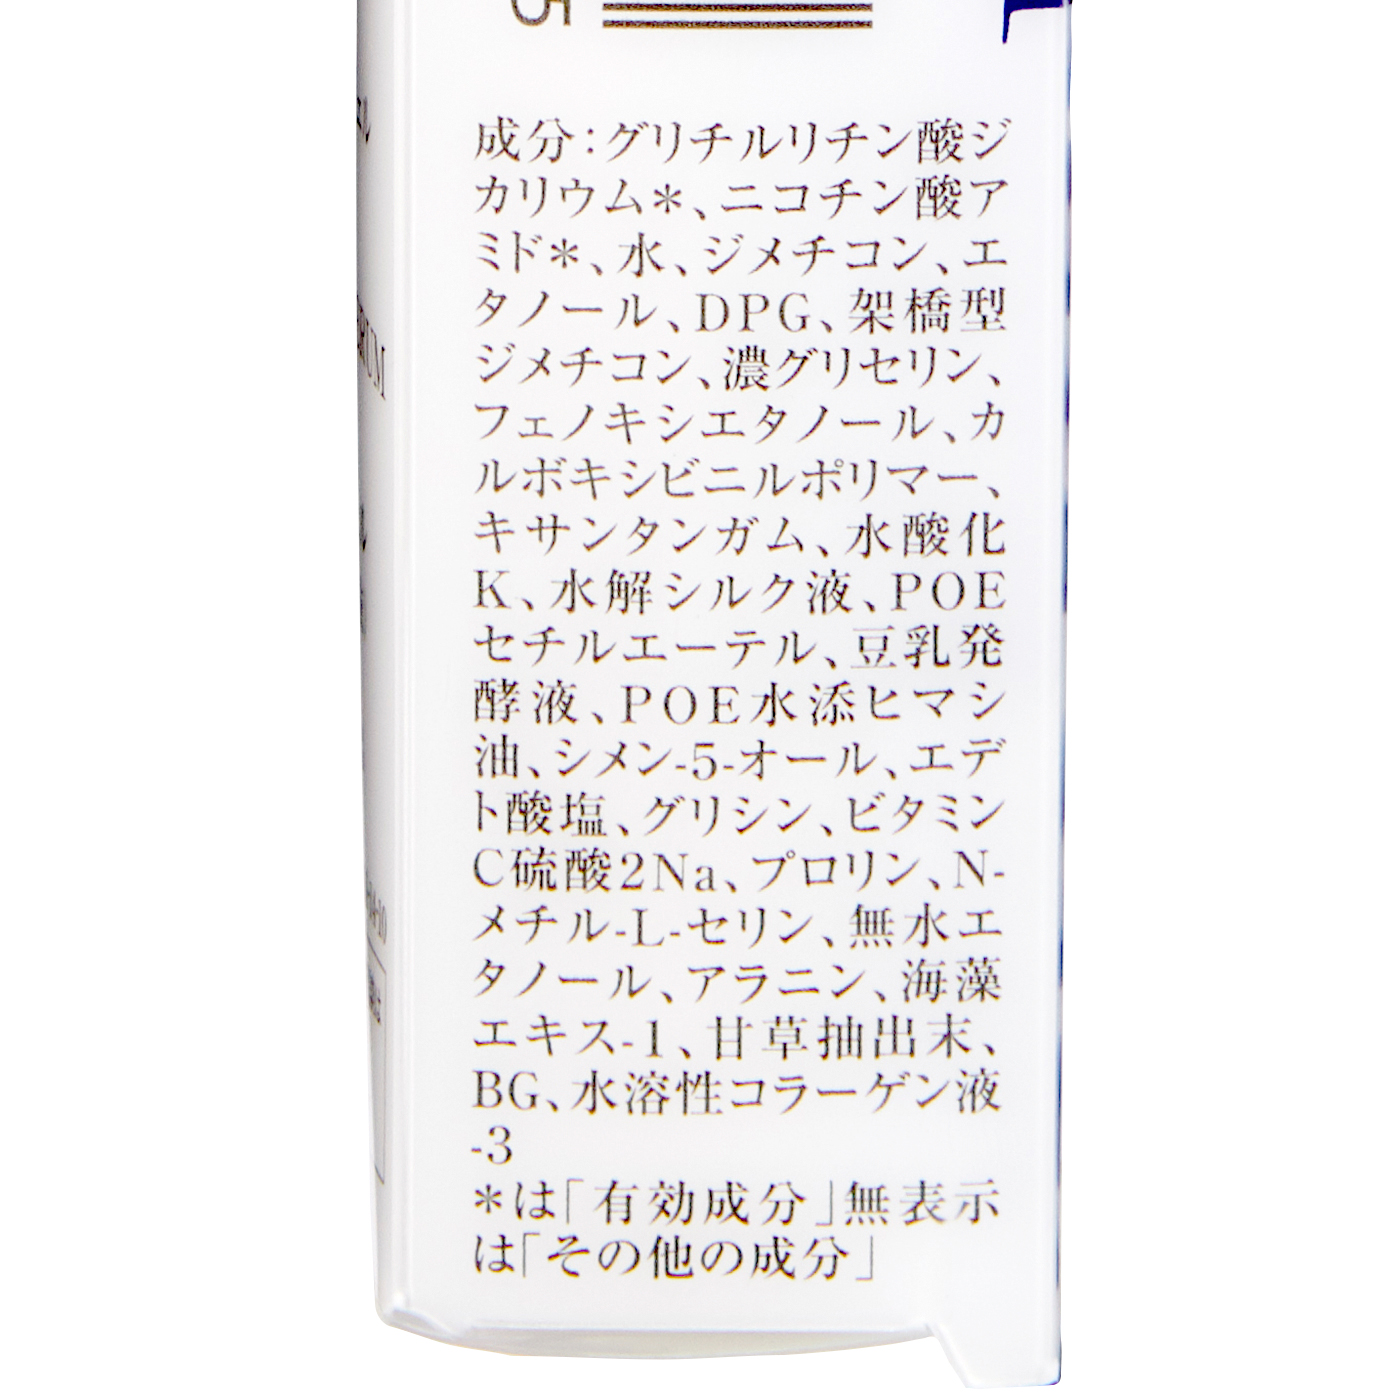 5
成分：グリチルリチン酸ジ
カリウム＊、ニコチン酸ア
ミド＊、水、ジメチコン、エ
タノール、DPG、架橋型
ジメチコン、濃グリセリン、
フェノキシエタノール、カ
ルボキシビニルポリマー、
キサンタンガム、水酸化
K、水解シルク液、POE
セチルエーテル、豆乳発
酵液、POE水添ヒマシ
油、シメン-5-オール、エデ
ト酸塩、グリシン、ビタミン
C硫酸2Na、プロリン、N-
メチル-L-セリン、無水エ
タノール、アラニン、海藻
エキス-1、甘草抽出末、
BG、水溶性コラーゲン液
-3
＊は「有効成分」無表示
は「その他の成分」